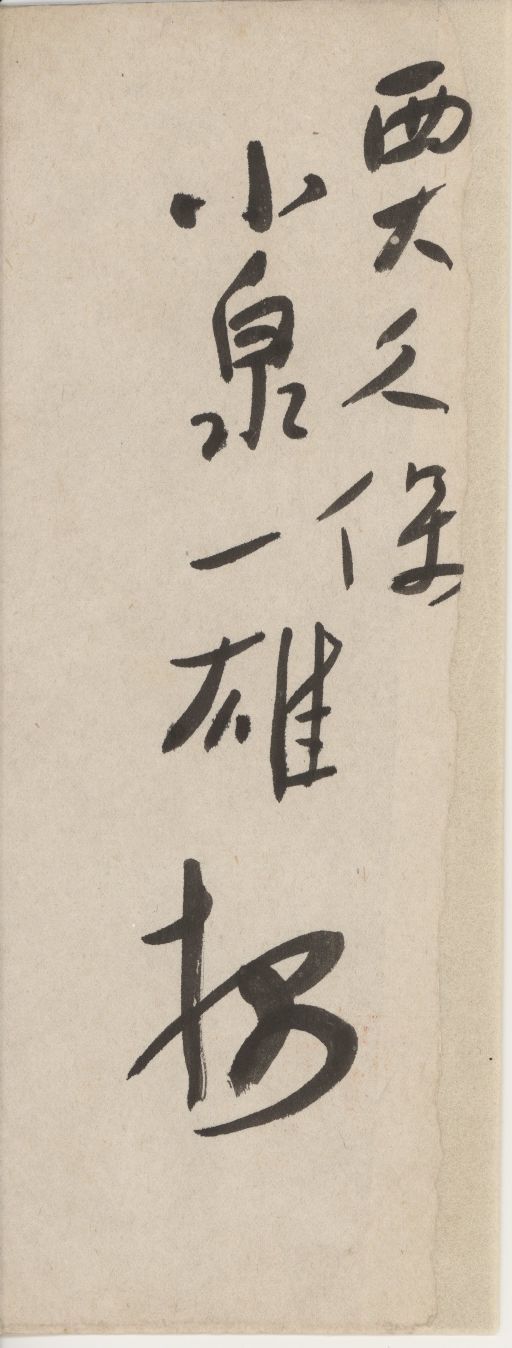 西大久保
小泉一雄様